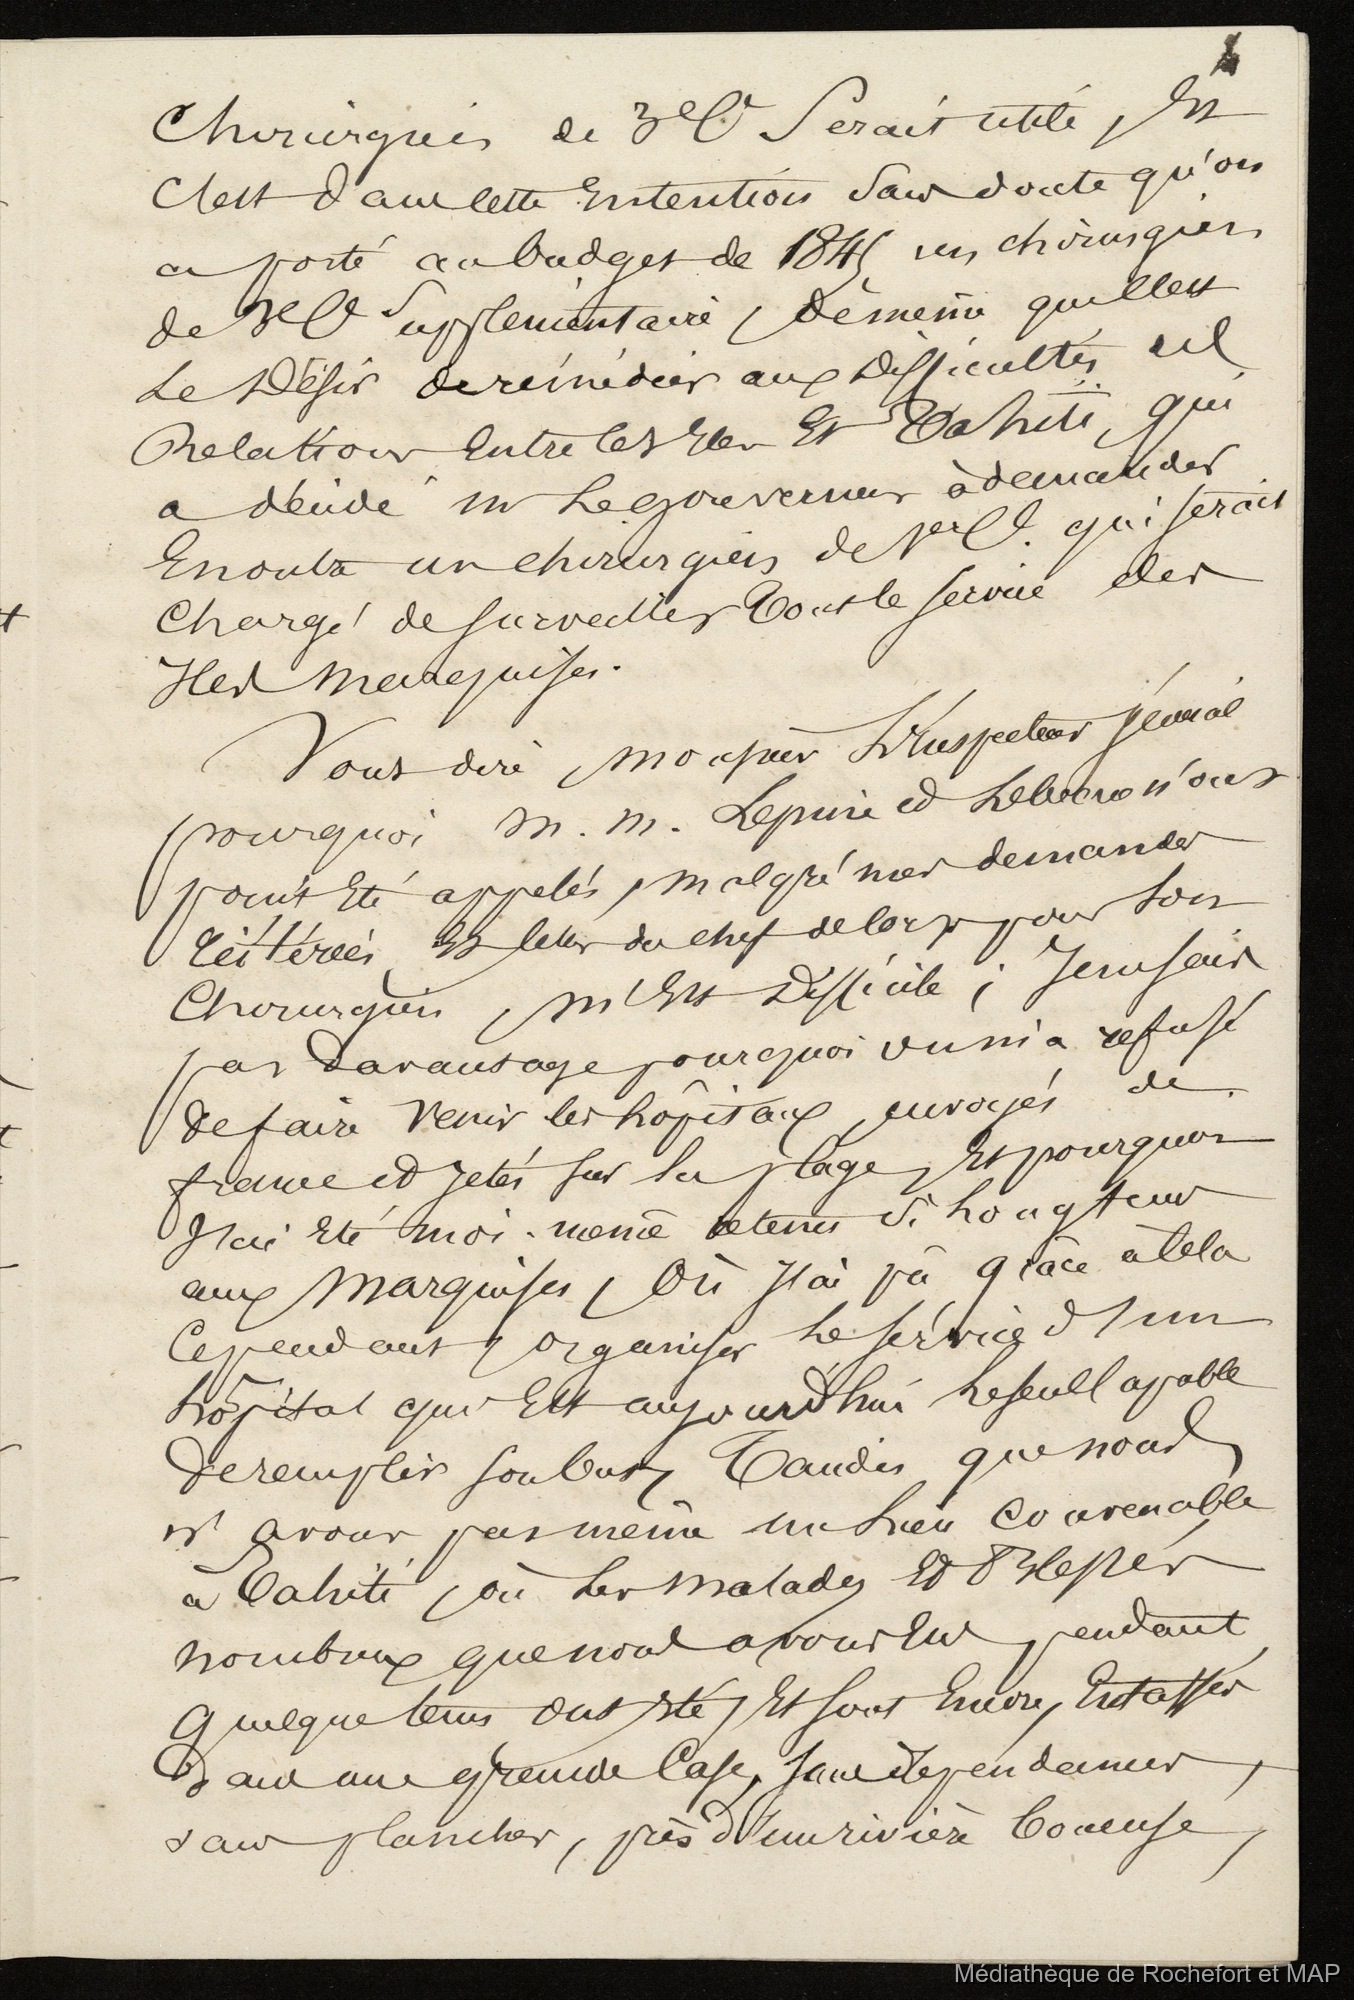 chirurgien de 3e Cl. serait utile, Et
C'est dans cette Intention sans doute qu'on
a porté au budget de 1845 un chirurgien
de 3e Cl. supplémentaire, de même que C'est
Le Désir de rémédier aux Difficultés de
Relations Entre les Iles Et Tahiti, qui
a décidé mr Le gouverneur à demander
En outre un chirurgien de 1ere Cl. qui serait
Chargé de surveiller Tout le service des
Iles Marquises.
Vous dire, monsieur L'Inspecteur général
pourquoi M. M. Lepine et n'ont
point Eté appelés, malgré mes demandes
réitérées, Et celles du chef de Corps pour Son
Chirurgien, m'Est Difficile ; Je ne sais
pas Davantage pourquoi on m'a refusé
de faire Venir les hôpitaux envoyés de
france et jetés sur la plage, Et pourquoi
J'ai Eté moi-même retenu si Longtems
aux Marquises, Où J'ai pû grâce à Cela
Cependant, organiser Le sérvice d'un
hôpital qui Est aujourd'hui Le seul Capable
De remplir son but, Tandis que nous
n'avons pas même un Lieu Convenable
à Tahiti, où Les Malades Et Blessés
nombreux que nous avons Eus pendant
quelque tems ont Eté, Et sont Encore, Entassés
Dans une grande Case, sans Dépendances,
sans plancher, près d'une rivière boueuse,
Médiathèque de Rochefort et MAP